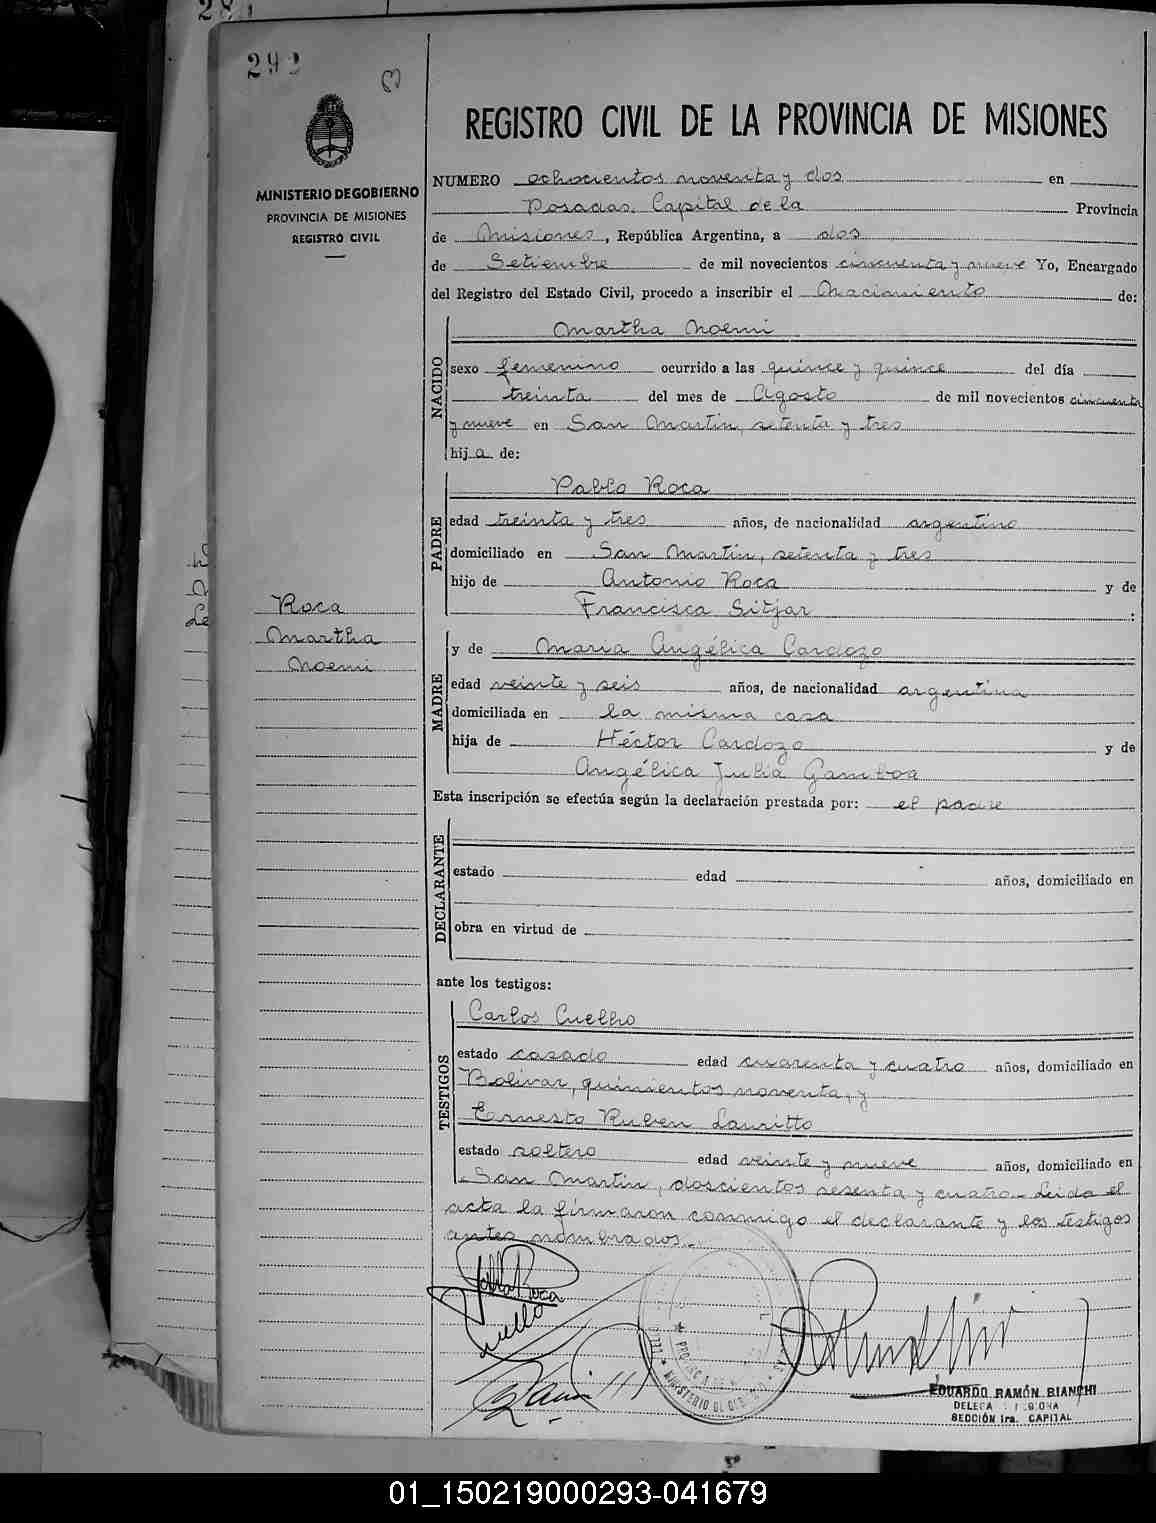 292
MINISTERIO DE GOBIERNO
PROVINCIA DE MISIONES
REGISTRO CIVIL
Roca
Martha
Noemi
REGISTRO CIVIL DE LA PROVINCIA DE MISIONES
NUMERO ochocientos noventa y dos en
Posadas, Capital de la Provincia
de Misiones, República Argentina, a dos
de Setiembre de mil novecientos cincuenta y nueve Yo, Encargado
del Registro del Estado Civil, procedo a inscribir el Nacimiento de:
NACIDO
Martha Noemi
sexo femenino ocurrido a las quince y quince del día
treinta del mes de Agosto de mil novecientos cincuenta
y nueve en San Martin, setenta y tres
hija de:
PADRE
Pablo Roca
edad treinta y tres años, de nacionalidad argentino
domiciliado en San Martin, setenta y tres
hijo de Antonio Roca y de
Francisca Sitjar :
MADRE
y de Maria Angélica Cardozo
edad veinte y seis años, de nacionalidad argentina
domiciliada en la misma casa
hija de Héctor Cardozo y de
Angélica Julia Gamboa
Esta inscripción se efectúa según la declaración prestada por: el padre
DECLARANTE
estado edad años, domiciliado en
obra en virtud de
ante los testigos:
TESTIGOS
Carlos Cuelho
estado casado edad cuarenta y cuatro años, domiciliado en
Bolivar, quinientos noventa, y
Ernesto Ruben Lauritto
estado soltero edad veinte y nueve años, domiciliado en
San Martin, doscientos sesenta y cuatro. Leida el
acta la firmaron conmigo el declarante y los testigos
antes nombrados.-
Pablo Roca
EDUARDO RAMÓN BIANCHI
SECCIÓN 1ra. CAPITAL
01_150219000293-041679